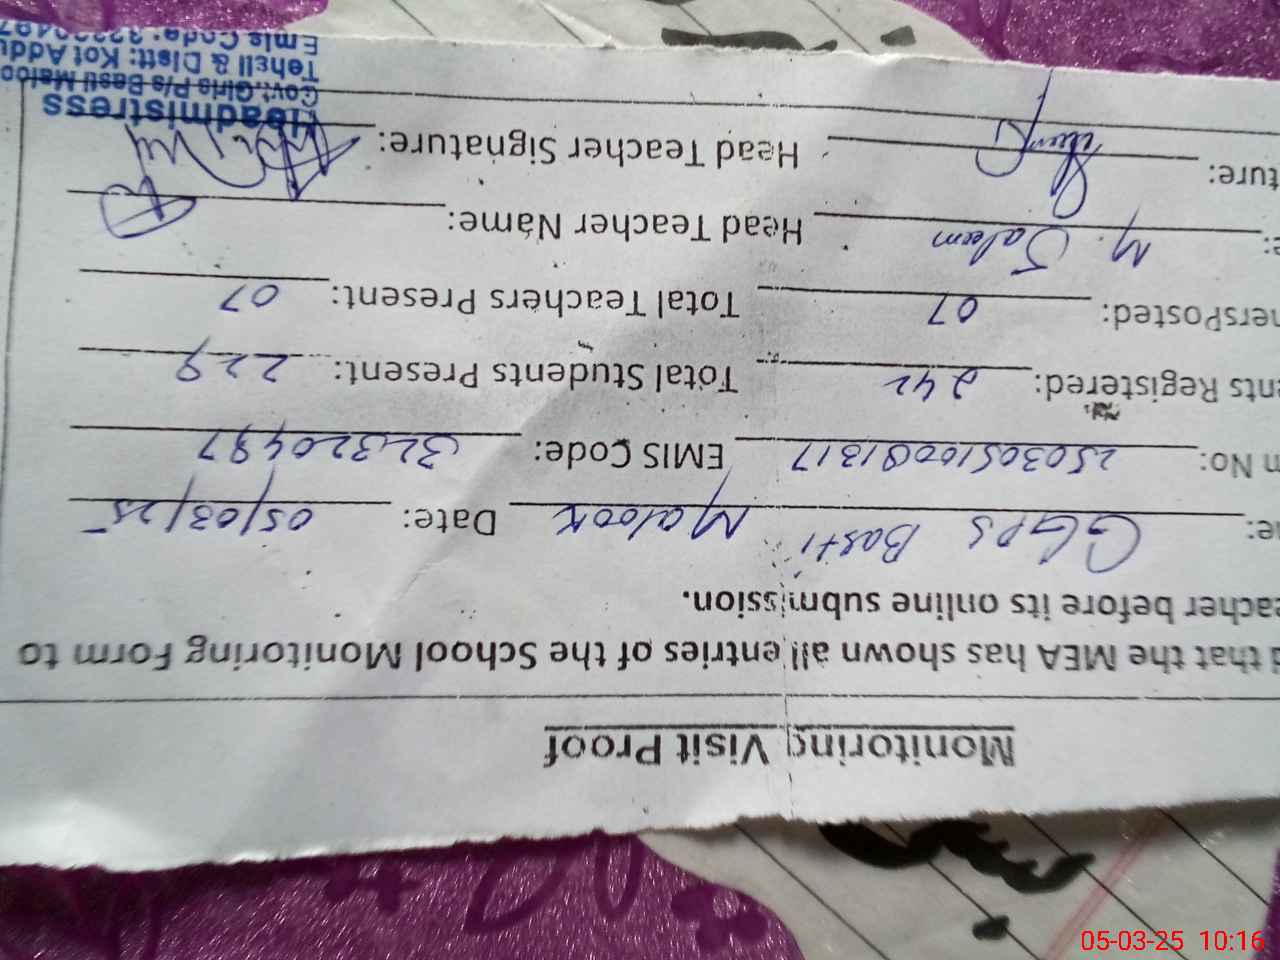 Monitoring Visit Proof
that the MEA has shown all entries of the School Monitoring Form to
eacher before its online submission.
e: GGPS Basti Malook Date: 05/03/25
n No: 250305100081317 EMIS Code: 32320497
nts Registered: 242 Total Students Present: 229
hersPosted: 07 Total Teachers Present: 07
e: M. Saleem Head Teacher Name:
ture: Head Teacher Signature:
Headmistress
Govt. Girls P/s Basti Maloo
Tehsil & Distt: Kot Addu
Emis Code:
05-03-25 10:16